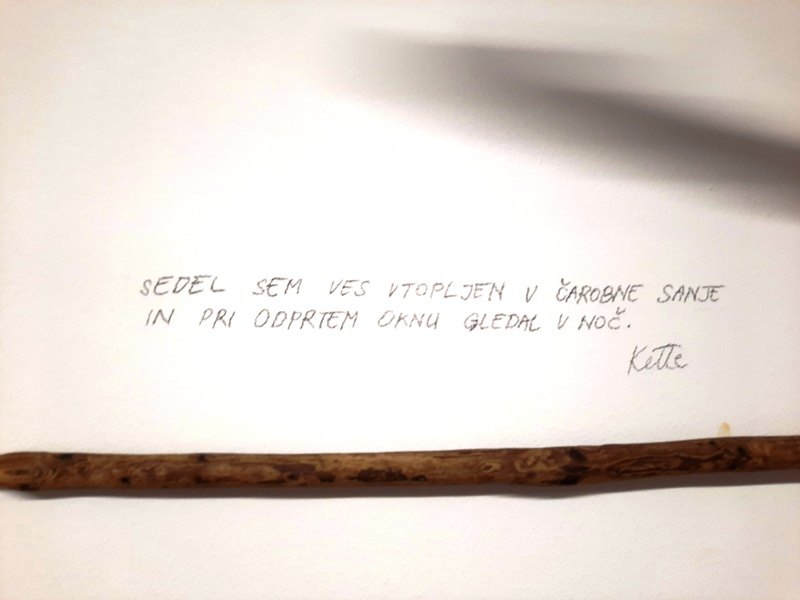 SEDEL SEM VES VTOPLJEN V ČAROBNE SANJE
IN PRI ODPRTEM OKNU GLEDAL V NOČ.
Kette